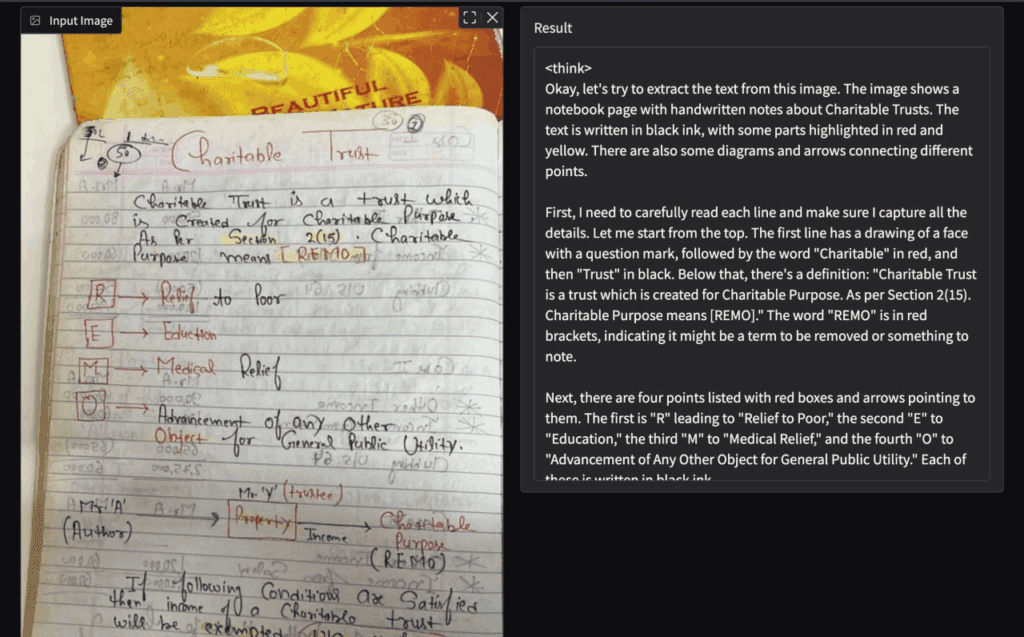 Input Image
BEAUTIFUL
36
50
Charitable Trust
Charitable Trust is a trust which
is Created for Charitable Purpose.
As Per Section 2(15). Charitable
Purpose means [REMO]
R → Relief to Poor
E → Eduction
M → Medical Relief
O → Advancement of any other
Object for General Public Utility.
Mr. 'Y' (trustee)
Mr. 'A' → Property → Charitable
(Author) Income Purpose
(REMO)
If following Conditions are Satisfied
then income of a Charitable trust
will be exempted
Result
<think>
Okay, let's try to extract the text from this image. The image shows a
notebook page with handwritten notes about Charitable Trusts. The
text is written in black ink, with some parts highlighted in red and
yellow. There are also some diagrams and arrows connecting different
points.
First, I need to carefully read each line and make sure I capture all the
details. Let me start from the top. The first line has a drawing of a face
with a question mark, followed by the word "Charitable" in red, and
then "Trust" in black. Below that, there's a definition: "Charitable Trust
is a trust which is created for Charitable Purpose. As per Section 2(15).
Charitable Purpose means [REMO]." The word "REMO" is in red
brackets, indicating it might be a term to be removed or something to
note.
Next, there are four points listed with red boxes and arrows pointing to
them. The first is "R" leading to "Relief to Poor," the second "E" to
"Education," the third "M" to "Medical Relief," and the fourth "O" to
"Advancement of Any Other Object for General Public Utility." Each of
these is written in black ink